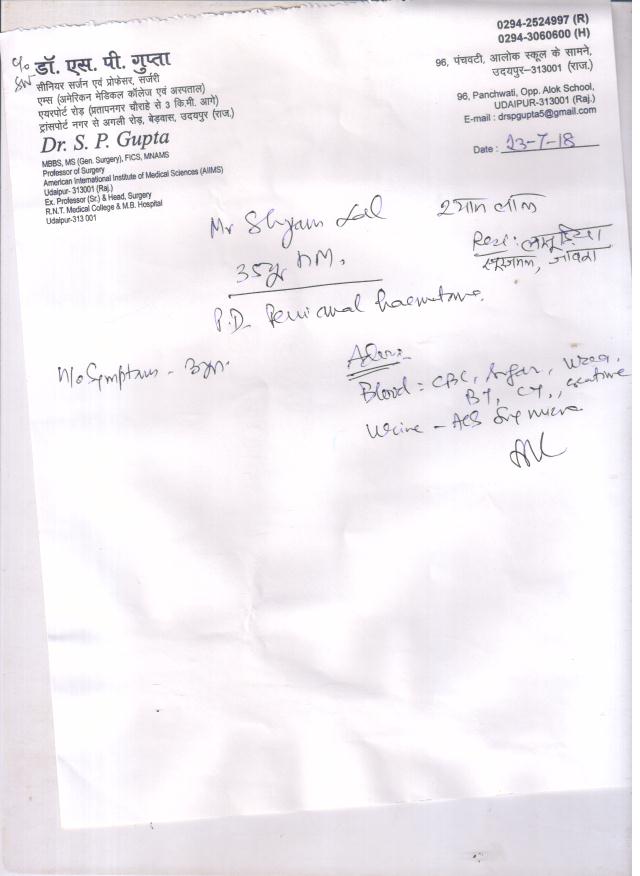 C/o
SW
डॉ. एस. पी. गुप्ता
सीनियर सर्जन एवं प्रोफेसर, सर्जरी
एम्स (अमेरिकन मेडिकल कॉलेज एवं अस्पताल)
एयरपोर्ट रोड़ (प्रतापनगर चौराहे से 3 कि.मी. आगे)
ट्रांसपोर्ट नगर से अगली रोड़, बेड़वास, उदयपुर (राज.)
Dr. S. P. Gupta
MBBS, MS (Gen. Surgery), FICS, MNAMS
Professor of Surgery
American International Institute of Medical Sciences (AIIMS)
Udaipur- 313001 (Raj.)
Ex. Professor (Sr.) & Head, Surgery
R.N.T. Medical College & M.B. Hospital
Udaipur-313 001
0294-2524997 (R)
0294-3060600 (H)
96, पंचवटी, आलोक स्कूल के सामने,
उदयपुर-313001 (राज.)
96, Panchwati, Opp. Alok School,
UDAIPUR-313001 (Raj.)
E-mail : drspgupta5@gmail.com
Date : 23-7-18
Mr Shyam Lal श्याम लाल
35yr M.
Resi:
P.D. Perianal haematoma.
H/o Symptoms -
Adv:-
Blood : CBC, Sugar, Urea,
BT, CT, Creatinine
Urine - Alb Sug micro